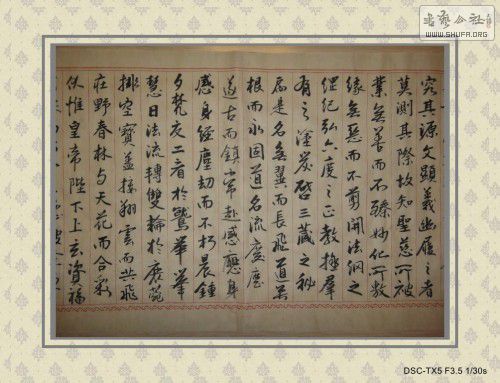 窮其源文顯義幽履之者
莫測其際故知聖慈所被
業無善而不臻妙化所敷
緣無惡而不剪開法網之
綱紀弘六度之正教拯群
有之塗炭啓三藏之秘
扃是名無翼而長飛道無
根而永固道名流慶歷
遂古而鎮常赴感應身
感身經塵劫而不朽晨鍾
夕梵交二音於鷲峯
慧日法流轉雙輪於鹿苑
排空寶蓋接翔雲而共飛
莊野春林与天花而合彩
伏惟皇帝陛下上玄資福
书艺公社
WWW.SHUFA.ORG
DSC-TX5 F3.5 1/30s